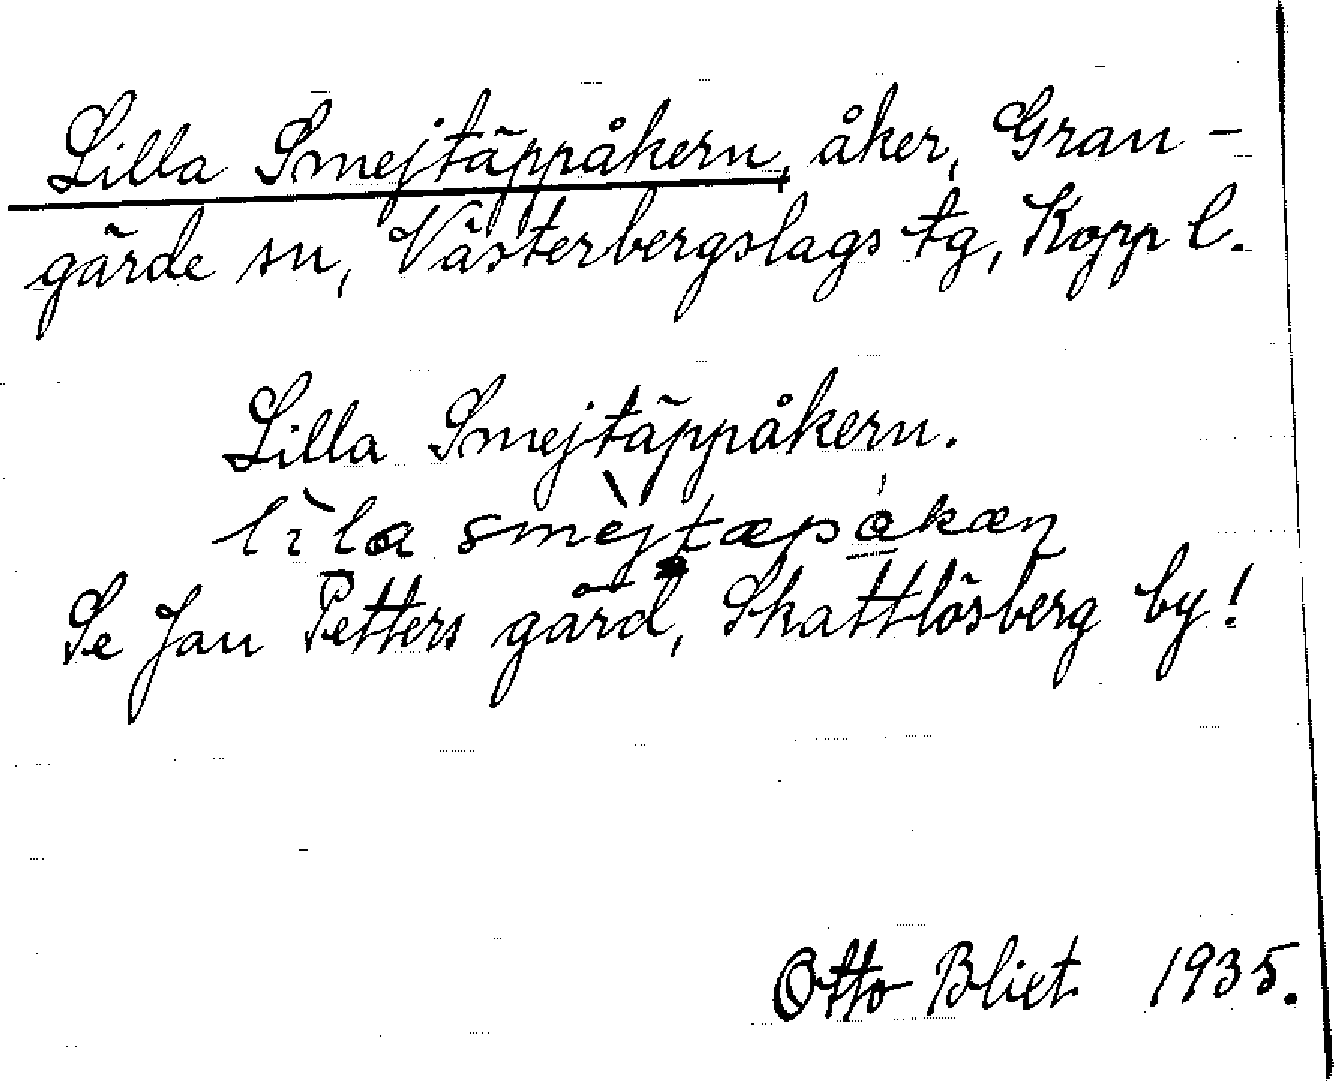 Lilla Smejtäppåkern, åker, Gran-
gärde sn, Västerbergslags tg, Kopp l.
Lilla Smejtäppåkern.
lìla smèjtæpåkæn
Se Jan Petters gård, Skattlösberg by!
Otto Blixt 1935.